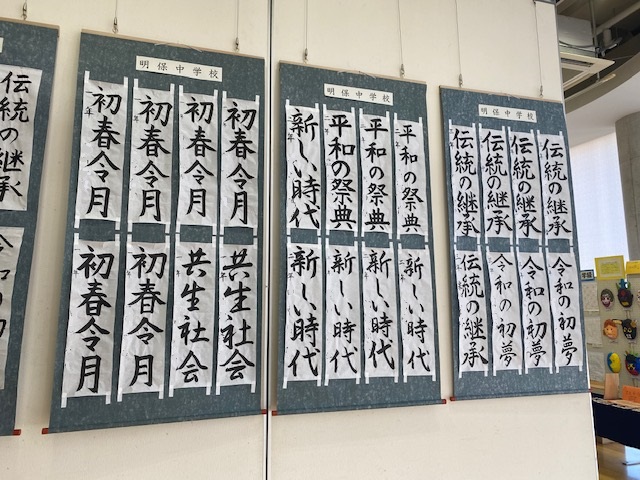 伝統の継承
明保中学校
初春令月
初春令月
初春令月
初春令月
初春令月
初春令月
共生社会
共生社会
明保中学校
新しい時代
平和の祭典
平和の祭典
平和の祭典
新しい時代
新しい時代
新しい時代
新しい時代
明保中学校
伝統の継承
伝統の継承
伝統の継承
伝統の継承
伝統の継承
令和の初夢
令和の初夢
令和の初夢